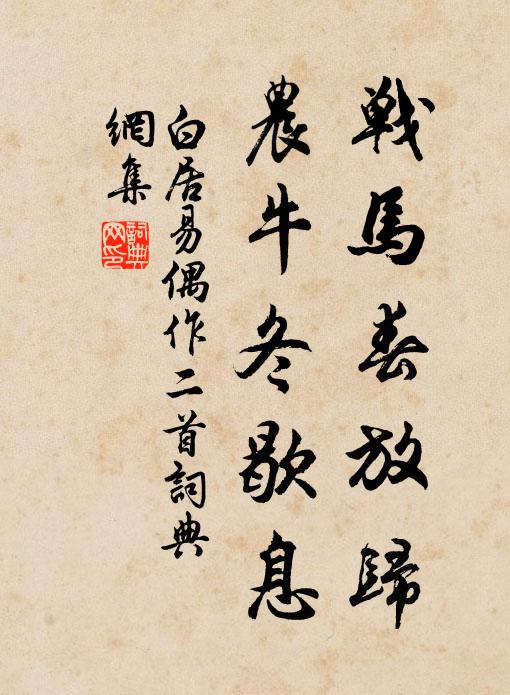 戰馬春放歸
農牛冬歇息
白居易偶作二首詞典
網集
詞典
网印